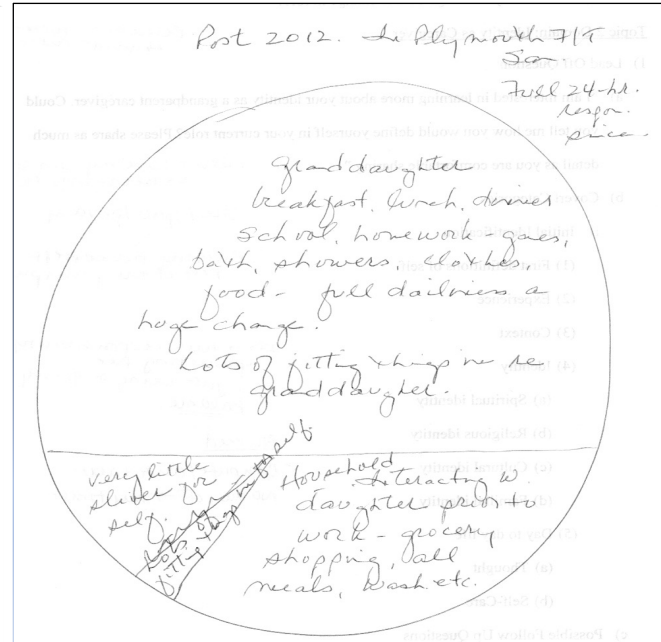 Post 2012. In Plymouth F/T
Full 24-hr.
respon.
since
granddaughter
breakfast, lunch, dinner
school, homework, games,
bath, showers, clothes,
food - full dailiness a
huge change.
Lots of fitting things in re
granddaughter.
very little
sliver for
self.
Lots of
fitting things in to self.
Household
Interacting w.
daughter prior to
work - grocery
shopping, all
meals, wash etc.